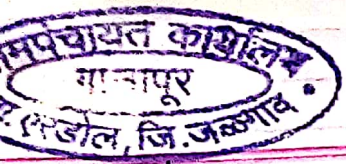 ग्रामपंचायत कार्यालय
ता. एरंडोल, जि. जळगाव